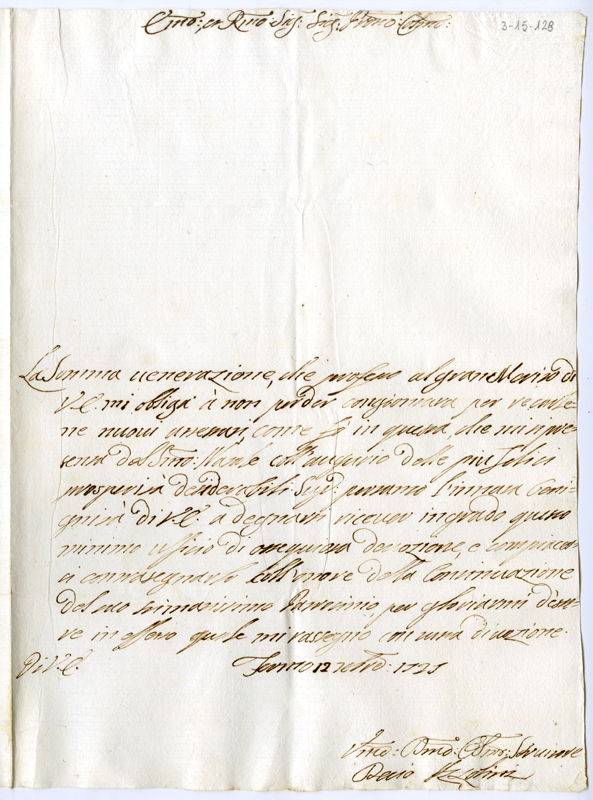 Em̃o: et Rm̃o Sig: Sig: Prone Colmo:
3-15-128
La Somma venerazione, che professo al gran Merito di
V.E. mi obliga à non perder congiontura per recarle
ne nuovi attestati, come fò in questa, che mi si pre
senta del Smo: Natale coll'augurio delle più felici
prosperità desiderabili. Supo: pertanto l'innata Beni-
gnità di V.E. a degnarsi ricever in grado questo
minimo ufficio di ossequiosa devozione, e compiacer
si contrasegnarlo coll'onore della Continuazione
del suo stimatissimo Patrocinio per gloriarmi d'esse
re in essere quale mi rassegno con tutta divozione.
Di V.E. 12 1725
Umo: Devo: Servitore
Decio